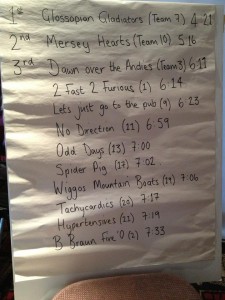 1st Glossopian Gladiators (Team 7) 4 21
2nd Mersey Hearts (Team 10) 5 16
3rd Dawn over the Andies (Team 3) 6:11
2 Fast 2 Furious (1) 6:14
Lets just go to the pub (9) 6 23
No Direction (22) 6:59
Odd Days (13) 7:00
Spider Pig (17) 7:02
Wiggos Mountain Boats (19) 7:06
Tachycardics (20) 7:17
Hypertensives (11) 7:19
B Braun Five 'O (2) 7:33